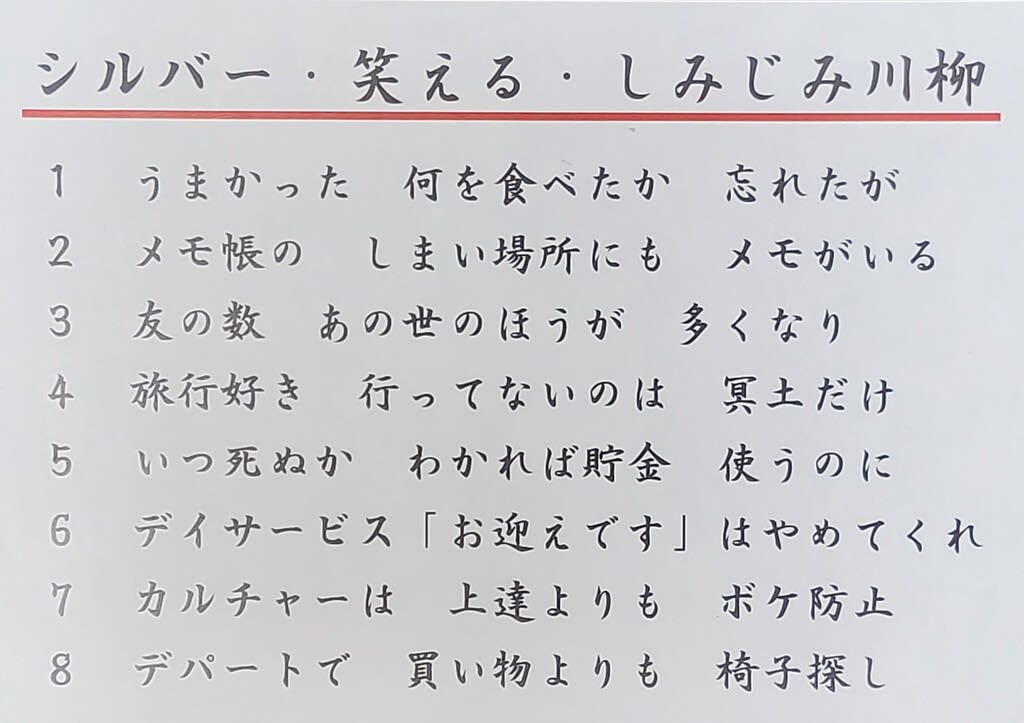 シルバー・笑える・しみじみ川柳
1 うまかった 何を食べたか 忘れたが
2 メモ帳の しまい場所にも メモがいる
3 友の数 あの世のほうが 多くなり
4 旅行好き 行ってないのは 冥土だけ
5 いつ死ぬか わかれば貯金 使うのに
6 デイサービス「お迎えです」はやめてくれ
7 カルチャーは 上達よりも ボケ防止
8 デパートで 買い物よりも 椅子探し